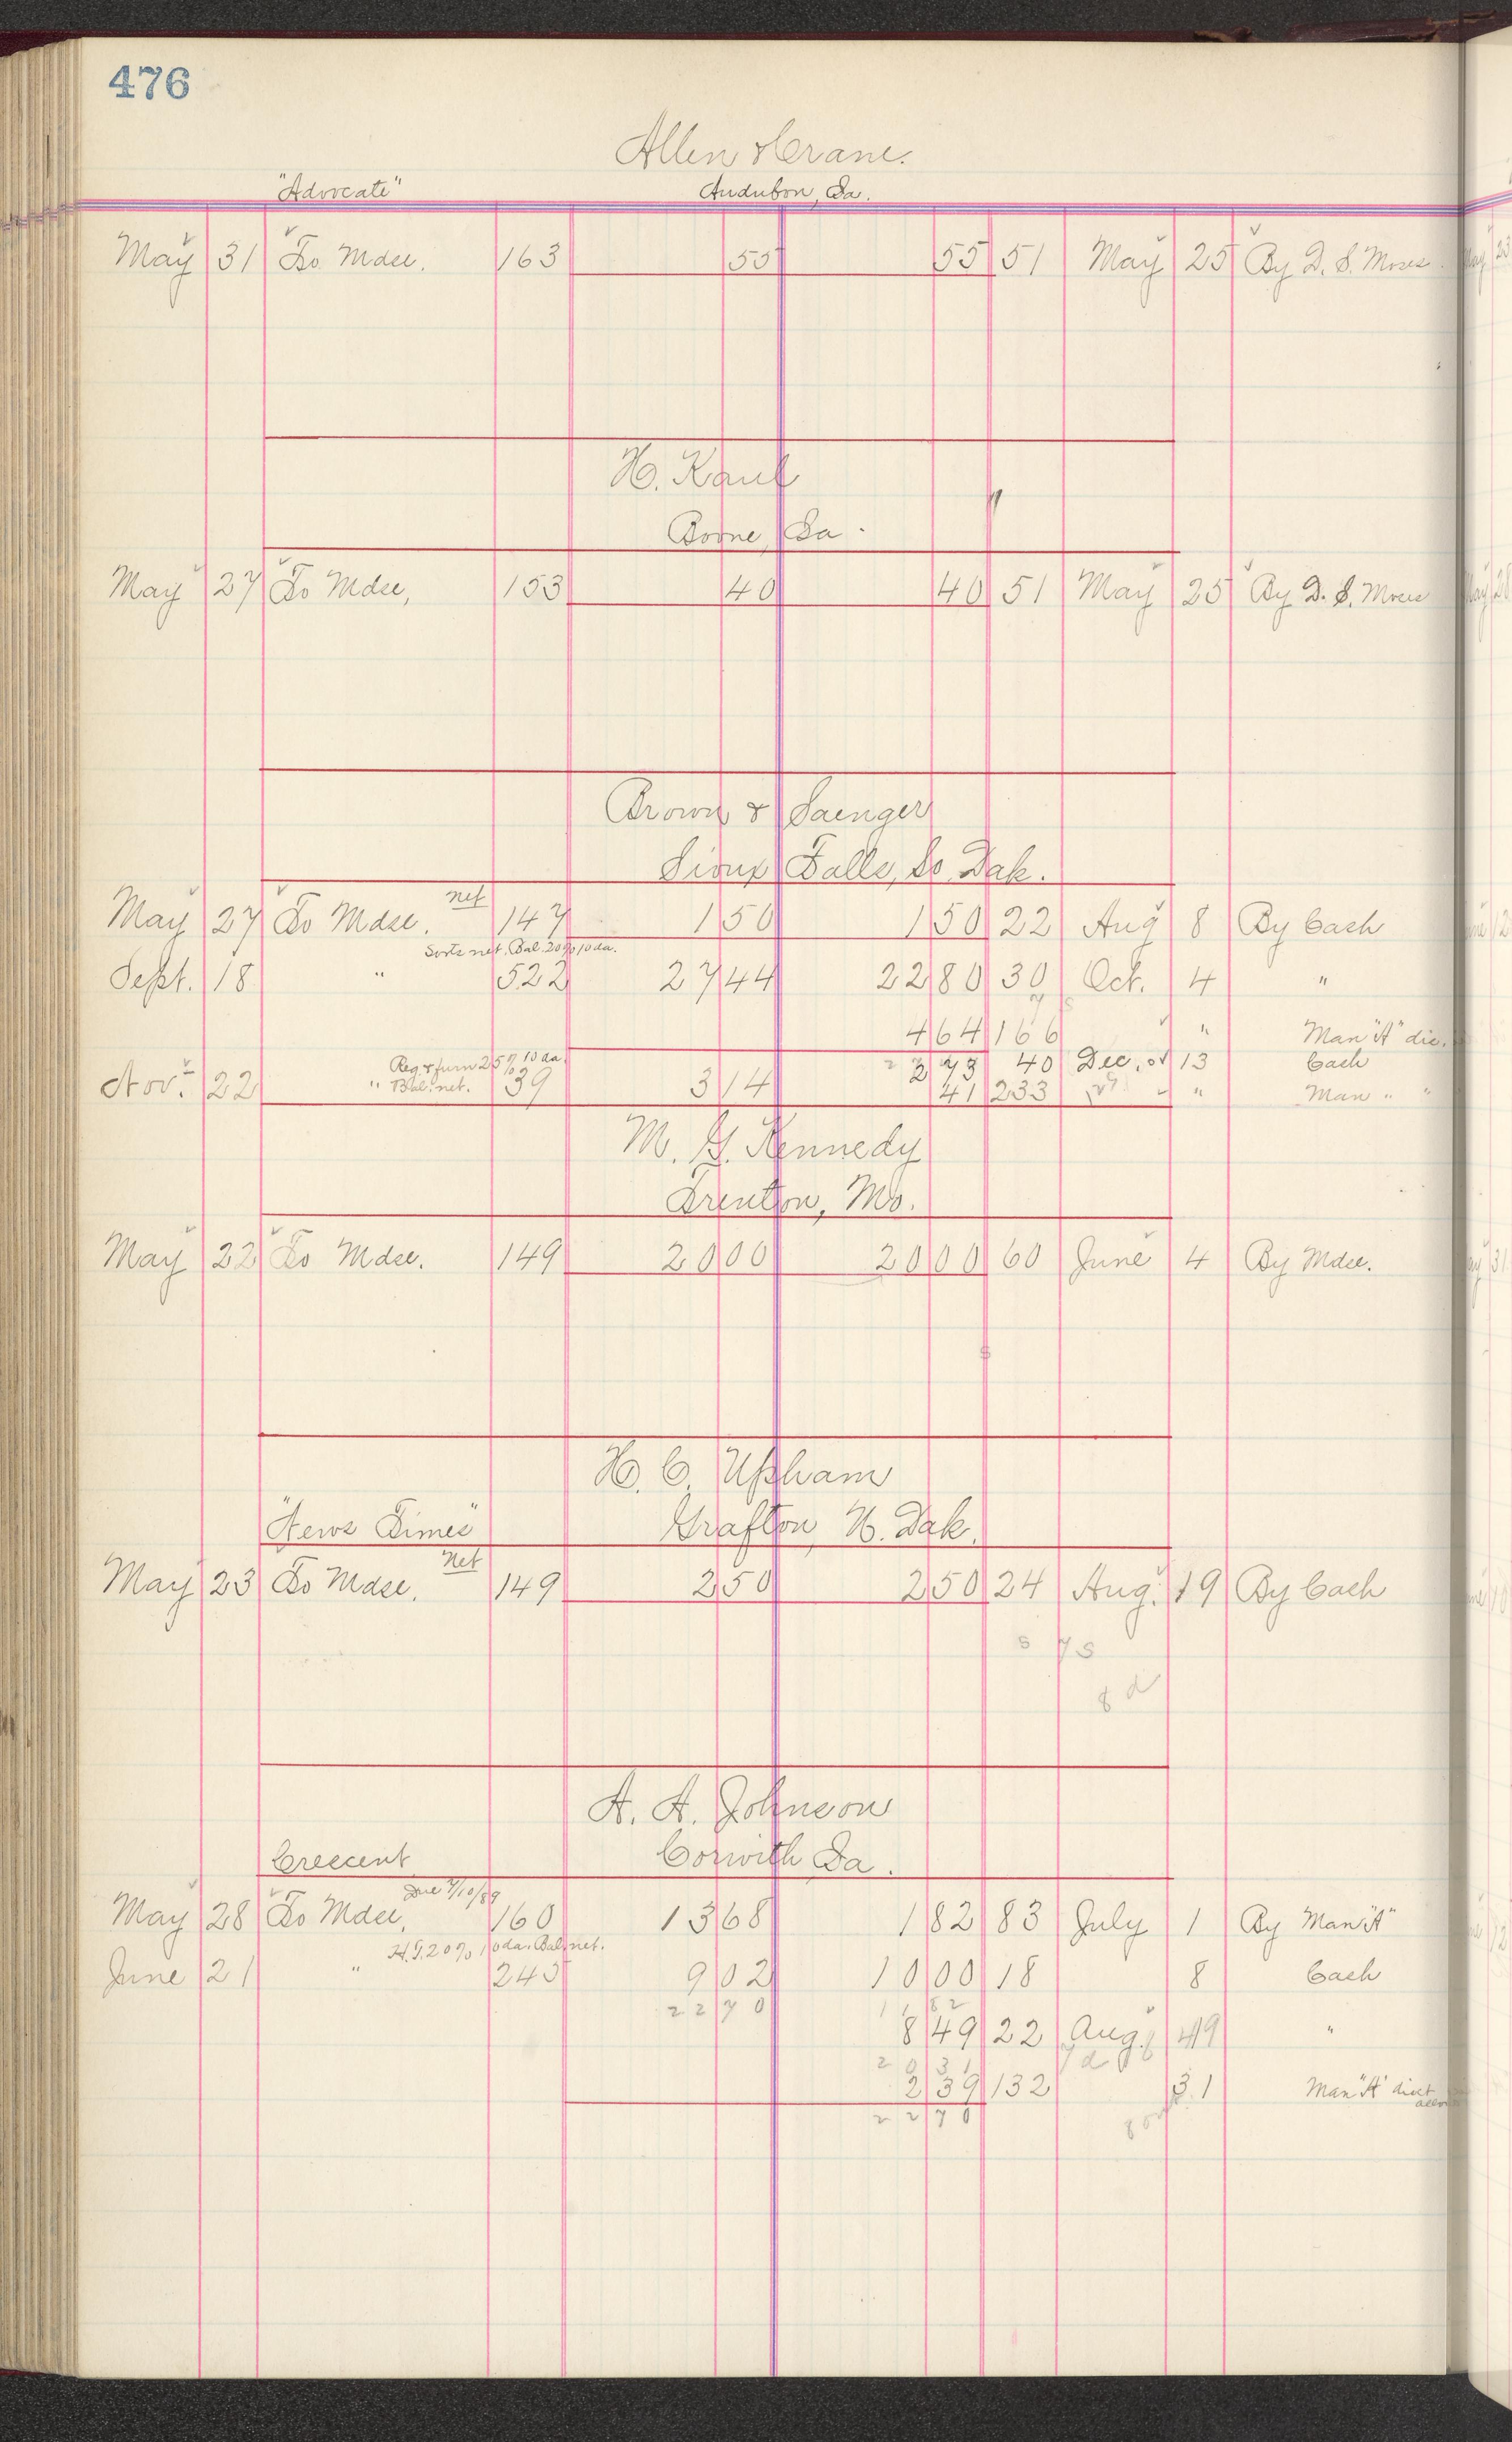 476
Allen & Crane.
"Advocate" Audubon, Ia.
May 31 To Mdse. 163 55 55 51 May 25 By D. S. Moses
H. Kaul
Boone, Ia.
May 27 To Mdse, 153 40 40 51 May 25 By D. S. Moses
Brown & Saenger
Sioux Falls, So. Dak.
net
May 27 To Mdse. 147 1 50 1 50 22 Aug 8 By Cash
Sorts net. Bal. 20% 10 da.
Sept. 18 " 522 27 44 22 80 30 Oct. 4 "
4 64 166 " Man "A" dis.
Reg. & furn 25% 10 da. 2 73 40 Dec. 13 Cash
Nov. 22 " Bal. net. 39 3 14 41 233 " Man " "
M. G. Kennedy
Trenton, Mo.
May 22 To Mdse. 149 20 00 20 00 60 June 4 By Mdse.
H. C. Upham
"News Times" Grafton, N. Dak.
Net
May 23 To Mdse. 149 2 50 2 50 24 Aug. 19 By Cash
A. A. Johnson
Crescent Corwith Ia.
Due 7/10/89
May 28 To Mdse, 160 13 68 1 82 83 July 1 By Man "A"
H.T. 20% 10 da. Bal. net.
June 21 " 245 9 02 10 00 18 8 Cash
22 70 11 82
8 49 22 Aug. 19 "
20 31
2 39 132 31 Man "A" disct
22 70